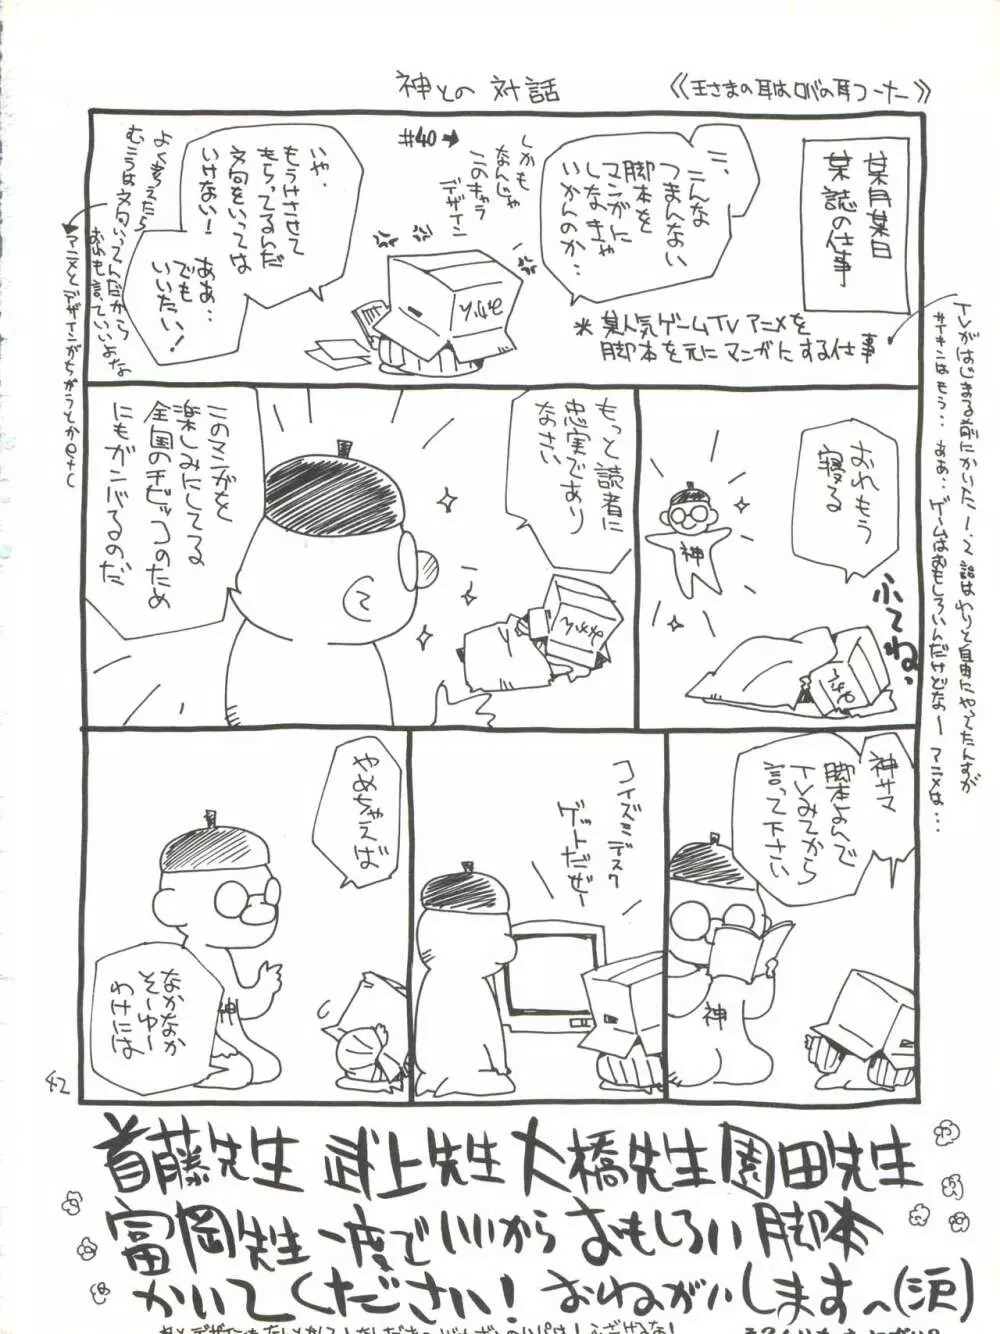 神との対話
《王さまの耳はロバの耳コーナー》
某月某日
某誌の仕事
こ、こんな
つまんない
脚本を
マンガに
しなきゃ
いかんのか…
しかも
なんじゃ
このキャラ
デザイン
#40→
※某人気ゲームTVアニメを
脚本を元にマンガにする仕事
いや、
もうけさせて
もらってるんだ
文句をいっては
いけない!
ああ…
でも
いいたい!
よく考えたら
むこうは文句いってんだから
おれも言っていいよな
アニメとデザインがちがうとかetc
TVがはじまる前にかいた1、2話はわりと自由にやってたんすが
サイキンはもう…ああ…ゲームはおもしろいんだけどなー アニメは…
おれもう
寝る
ふてね。
神
もっと読者に
忠実であり
なさい
このマンガを
楽しみにしてる
全国のチビッコのため
にもガンバるのだ
神サマ
脚本よんで
TVみてから
言って下さい
神
コイズミデスク
ゲットだぜー
やめちゃえば
なかなか
そーゆー
わけには
神
42
首藤先生 武上先生 大橋先生 園田先生
冨岡先生 一度でいいから おもしろい脚本
かいてください! おねがいしますへ(涙)